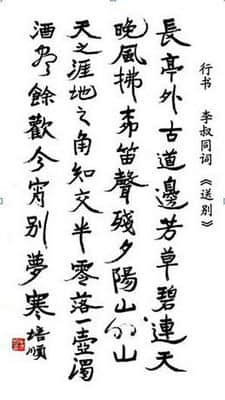 行书 李叔同词《送别》
長亭外古道邊芳草碧連天
晚風拂柳笛聲殘夕陽山外山
天之涯地之角知交半零落一壺濁
酒盡餘歡今宵別夢寒 培順